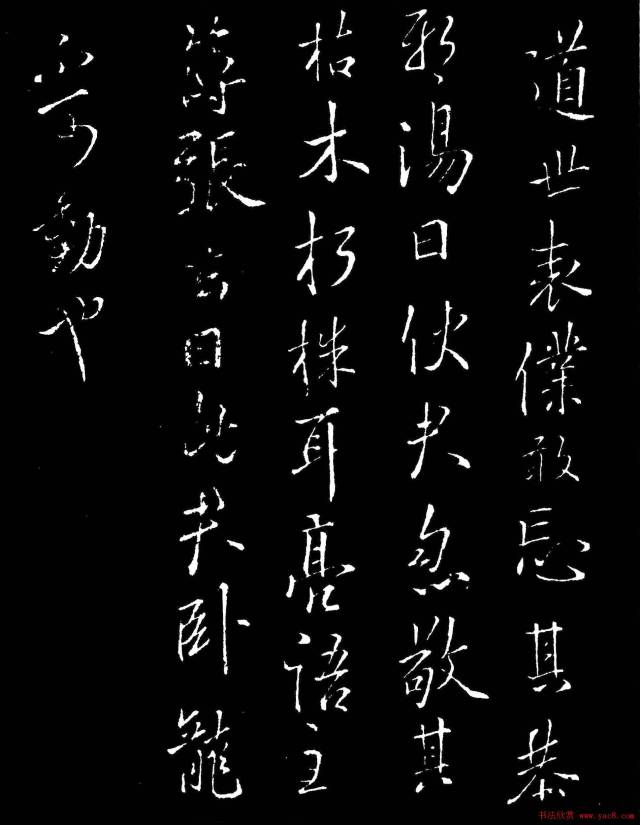 道世表僕敢忘其恭
耶湯曰使君忽敬其
枯木朽株耳亮語主
簿張曰此君卧龍
不可動也
书法欣赏 www.yac8.com